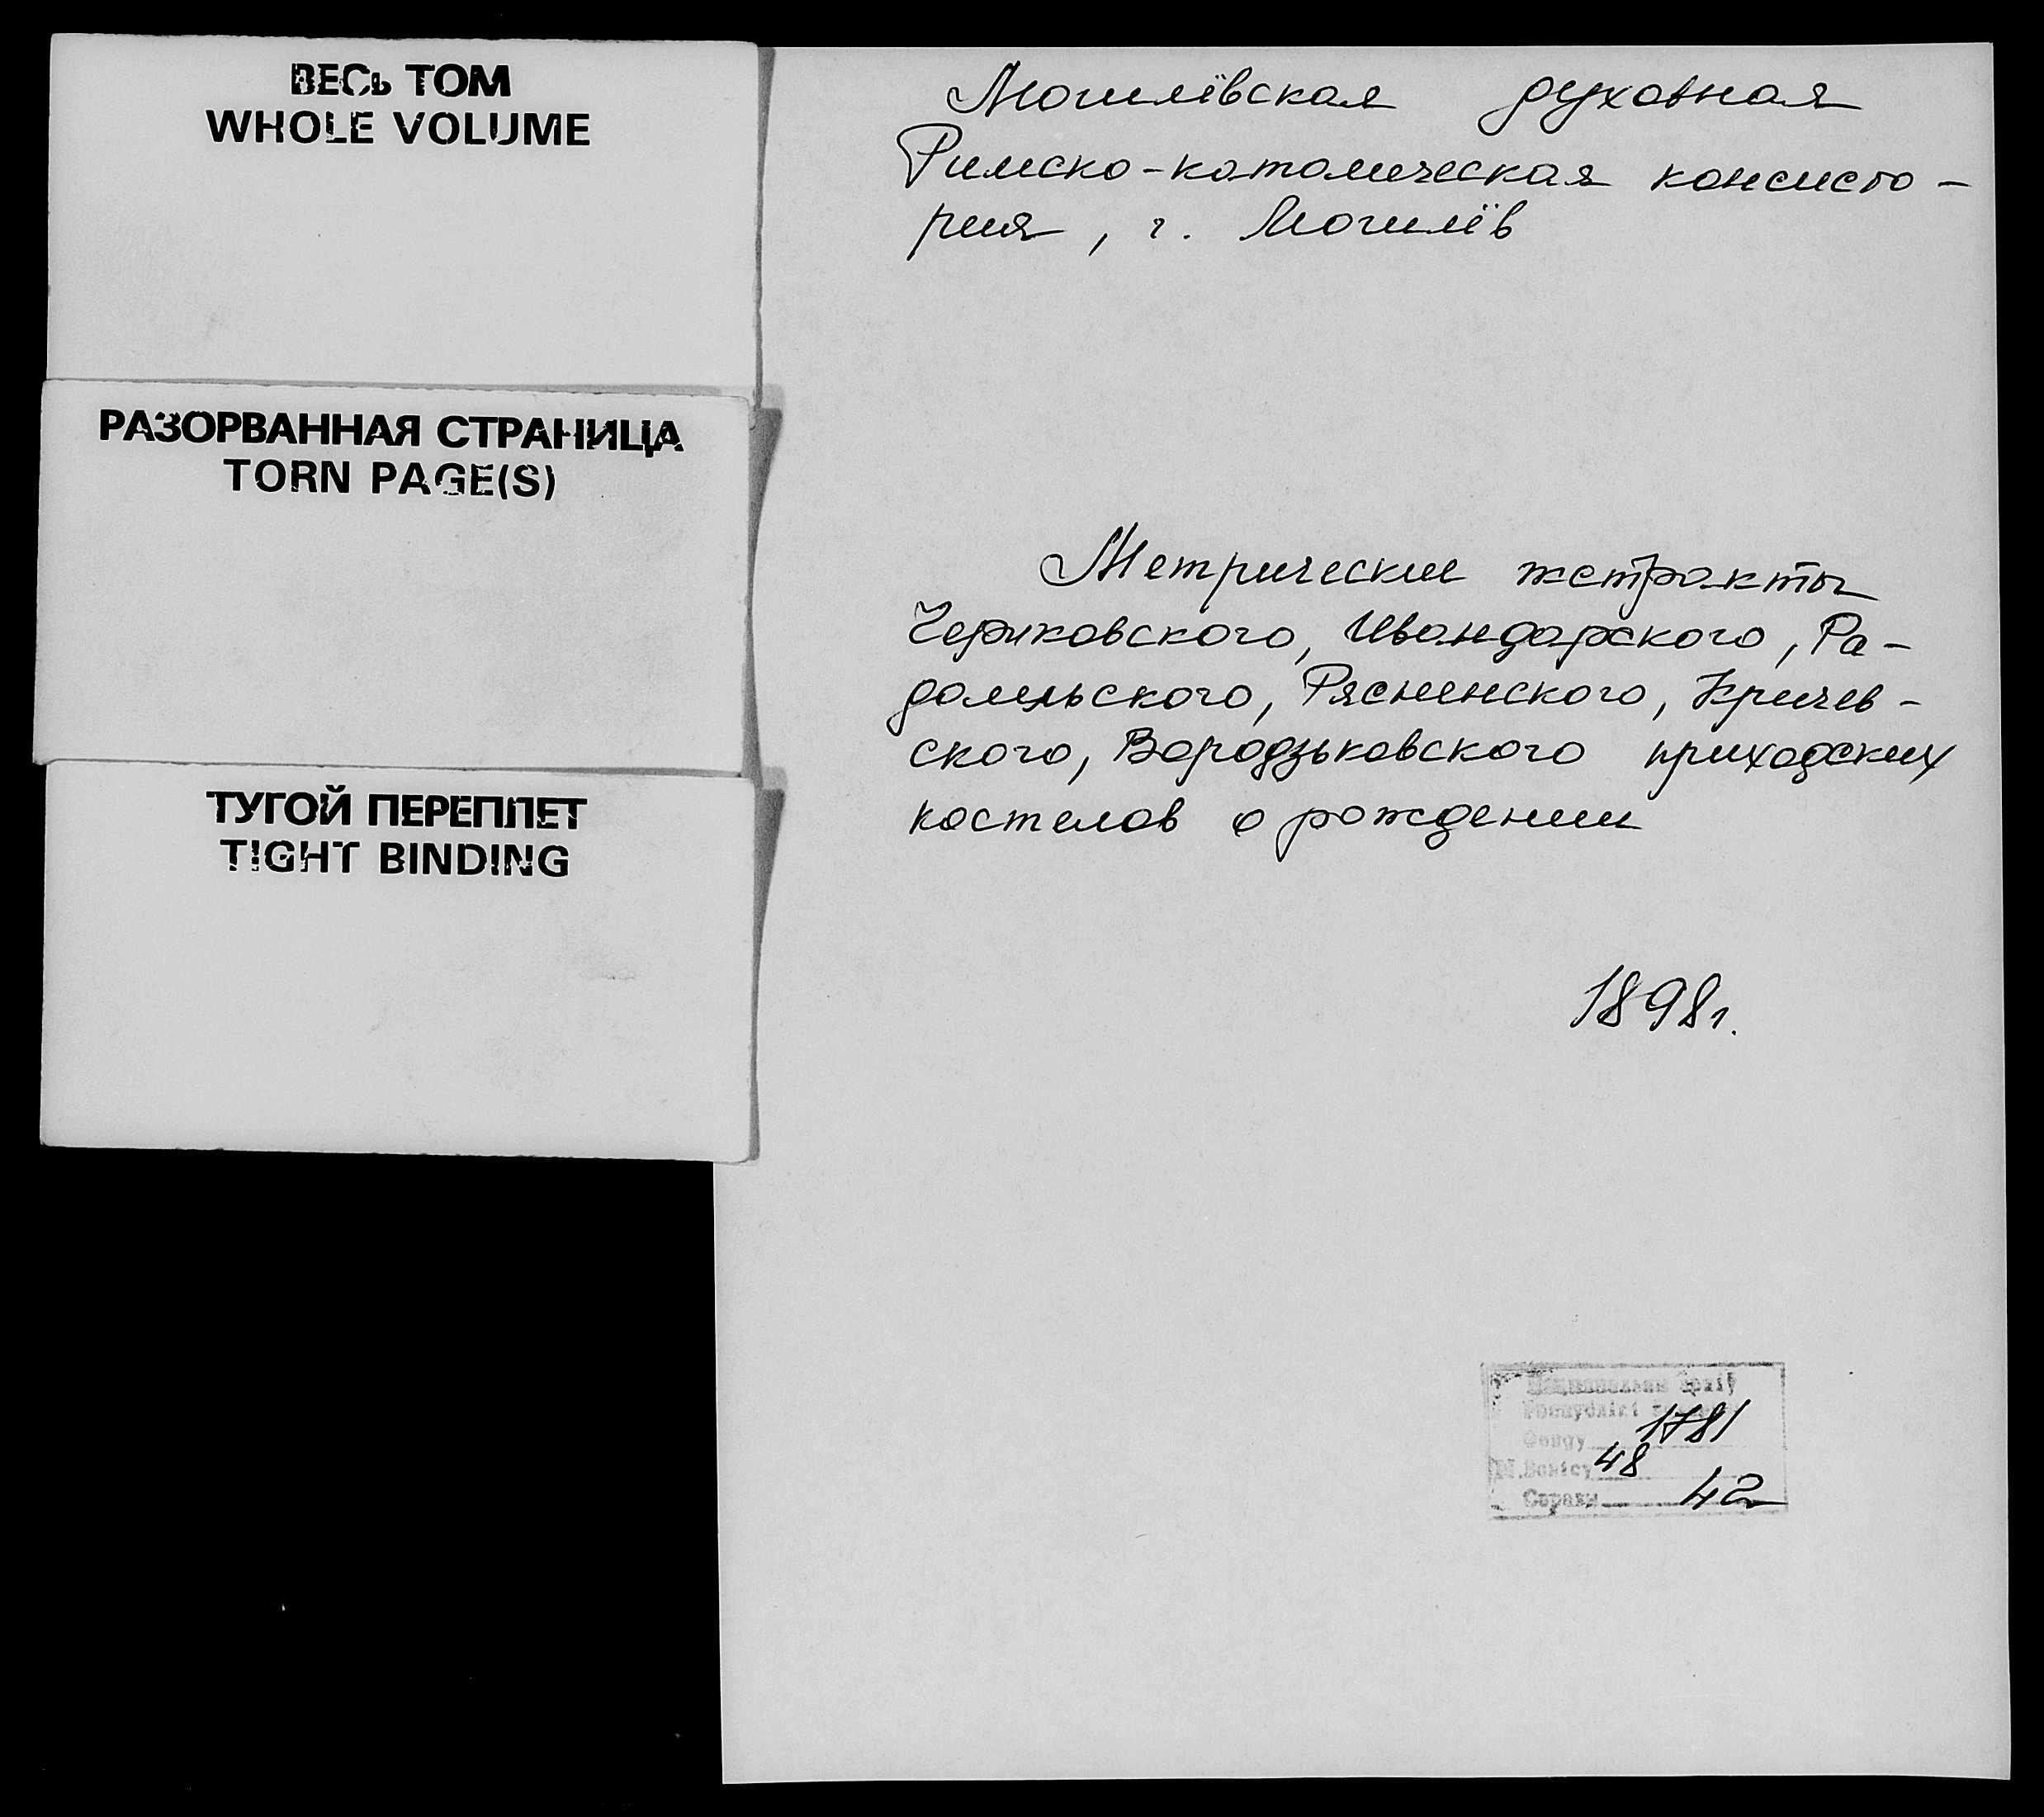 ВЕСЬ ТОМ
WHOLE VOLUME
РАЗОРВАННАЯ СТРАНИЦА
TORN PAGE(S)
ТУГОЙ ПЕРЕПЛЕТ
TIGHT BINDING
Могилёвская духовная
Римско-католическая консисто-
рия, г. Могилёв
Метрические экстракты
Чериковского, Ивандарского, Ра-
домльского, Рясненского, Кричев-
ского, Вородзьковского приходских
костелов о рождении
1898г.
Фонду 1781
48
Справы 42